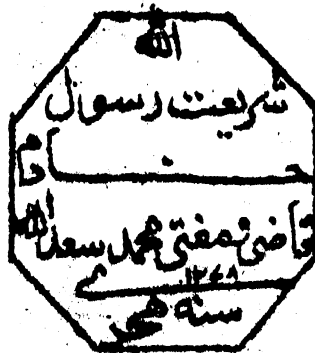 الله
شریعت رسول
خادم
قاضی و مفتی محمد سعد الله
۱۲۶۸
سنه هجری